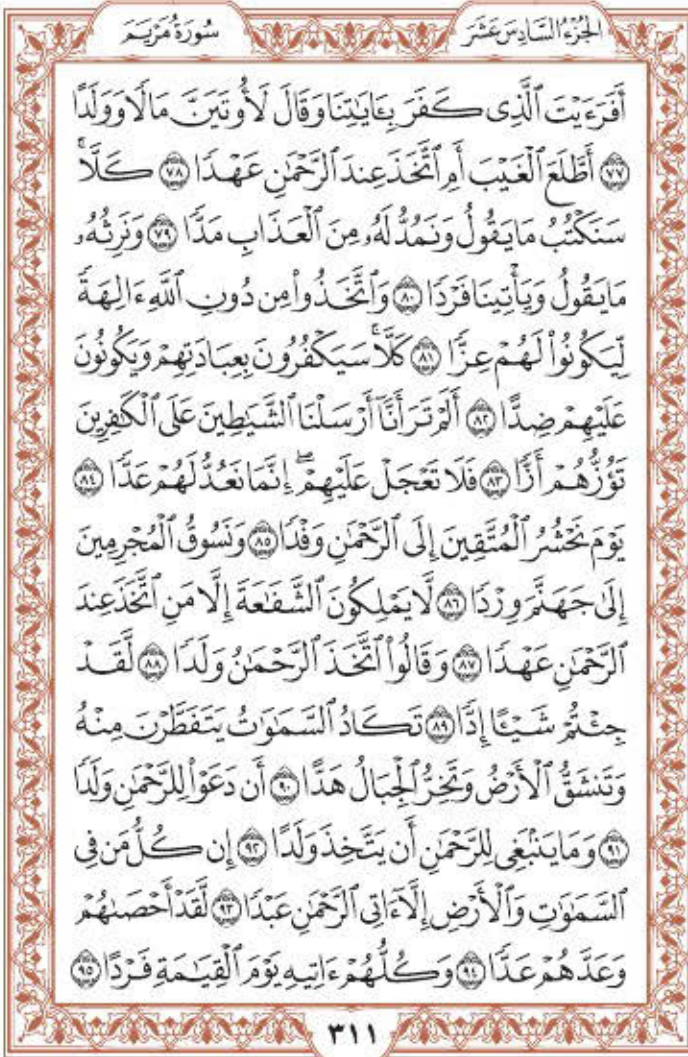 الجُزْءُ السَّادِسَ عَشَرَ
سُورَةُ مَرْيَمَ
أَفَرَءَيْتَ ٱلَّذِى كَفَرَ بِـَٔايَٰتِنَا وَقَالَ لَأُوتَيَنَّ مَالًا وَوَلَدًا
﴿٧٧﴾ أَطَّلَعَ ٱلْغَيْبَ أَمِ ٱتَّخَذَ عِندَ ٱلرَّحْمَٰنِ عَهْدًا ﴿٧٨﴾ كَلَّا ۚ
سَنَكْتُبُ مَا يَقُولُ وَنَمُدُّ لَهُۥ مِنَ ٱلْعَذَابِ مَدًّا ﴿٧٩﴾ وَنَرِثُهُۥ
مَا يَقُولُ وَيَأْتِينَا فَرْدًا ﴿٨٠﴾ وَٱتَّخَذُوا۟ مِن دُونِ ٱللَّهِ ءَالِهَةً
لِّيَكُونُوا۟ لَهُمْ عِزًّا ﴿٨١﴾ كَلَّا ۚ سَيَكْفُرُونَ بِعِبَادَتِهِمْ وَيَكُونُونَ
عَلَيْهِمْ ضِدًّا ﴿٨٢﴾ أَلَمْ تَرَ أَنَّآ أَرْسَلْنَا ٱلشَّيَٰطِينَ عَلَى ٱلْكَٰفِرِينَ
تَؤُزُّهُمْ أَزًّا ﴿٨٣﴾ فَلَا تَعْجَلْ عَلَيْهِمْ ۖ إِنَّمَا نَعُدُّ لَهُمْ عَدًّا ﴿٨٤﴾
يَوْمَ نَحْشُرُ ٱلْمُتَّقِينَ إِلَى ٱلرَّحْمَٰنِ وَفْدًا ﴿٨٥﴾ وَنَسُوقُ ٱلْمُجْرِمِينَ
إِلَىٰ جَهَنَّمَ وِرْدًا ﴿٨٦﴾ لَّا يَمْلِكُونَ ٱلشَّفَٰعَةَ إِلَّا مَنِ ٱتَّخَذَ عِندَ
ٱلرَّحْمَٰنِ عَهْدًا ﴿٨٧﴾ وَقَالُوا۟ ٱتَّخَذَ ٱلرَّحْمَٰنُ وَلَدًا ﴿٨٨﴾ لَّقَدْ
جِئْتُمْ شَيْـًٔا إِدًّا ﴿٨٩﴾ تَكَادُ ٱلسَّمَٰوَٰتُ يَتَفَطَّرْنَ مِنْهُ
وَتَنشَقُّ ٱلْأَرْضُ وَتَخِرُّ ٱلْجِبَالُ هَدًّا ﴿٩٠﴾ أَن دَعَوْا۟ لِلرَّحْمَٰنِ وَلَدًا
﴿٩١﴾ وَمَا يَنۢبَغِى لِلرَّحْمَٰنِ أَن يَتَّخِذَ وَلَدًا ﴿٩٢﴾ إِن كُلُّ مَن فِى
ٱلسَّمَٰوَٰتِ وَٱلْأَرْضِ إِلَّآ ءَاتِى ٱلرَّحْمَٰنِ عَبْدًا ﴿٩٣﴾ لَّقَدْ أَحْصَىٰهُمْ
وَعَدَّهُمْ عَدًّا ﴿٩٤﴾ وَكُلُّهُمْ ءَاتِيهِ يَوْمَ ٱلْقِيَٰمَةِ فَرْدًا ﴿٩٥﴾
٣١١